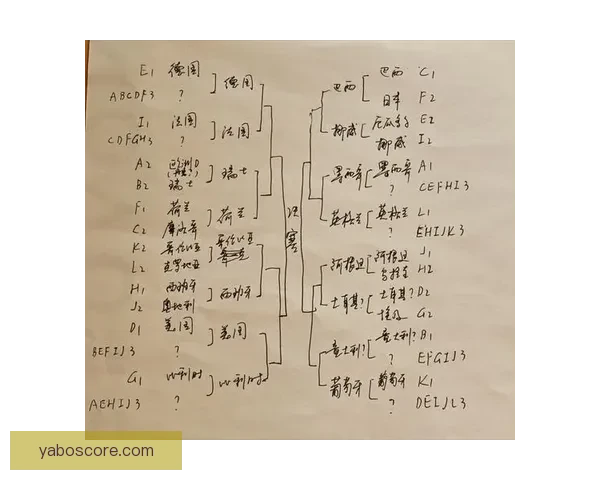 E1 德国
ABCDF3 ?
德国
I1 法国
CDFGH3 ?
法国
A2 欧洲D
B2 瑞士
瑞士
F1 荷兰
C2 摩洛哥
荷兰
K2 哥伦比亚
L2 克罗地亚
哥伦比亚
H1 西班牙
J2 奥地利
西班牙
D1 美国
BEFIJ3 ?
美国
G1 比利时
AEHIJ3 ?
比利时
决赛
巴西
巴西 C1
日本 F2
挪威
厄瓜多尔 E2
挪威 I2
墨西哥
墨西哥 A1
? CEFHI3
英格兰
英格兰 L1
? EHIJK3
阿根廷
阿根廷 J1
乌拉圭 H2
土耳其?
土耳其? D2
埃及 G2
意大利?
意大利? B1
? EFGIJ3
葡萄牙
葡萄牙 K1
? DEIJL3
yaboscore.com